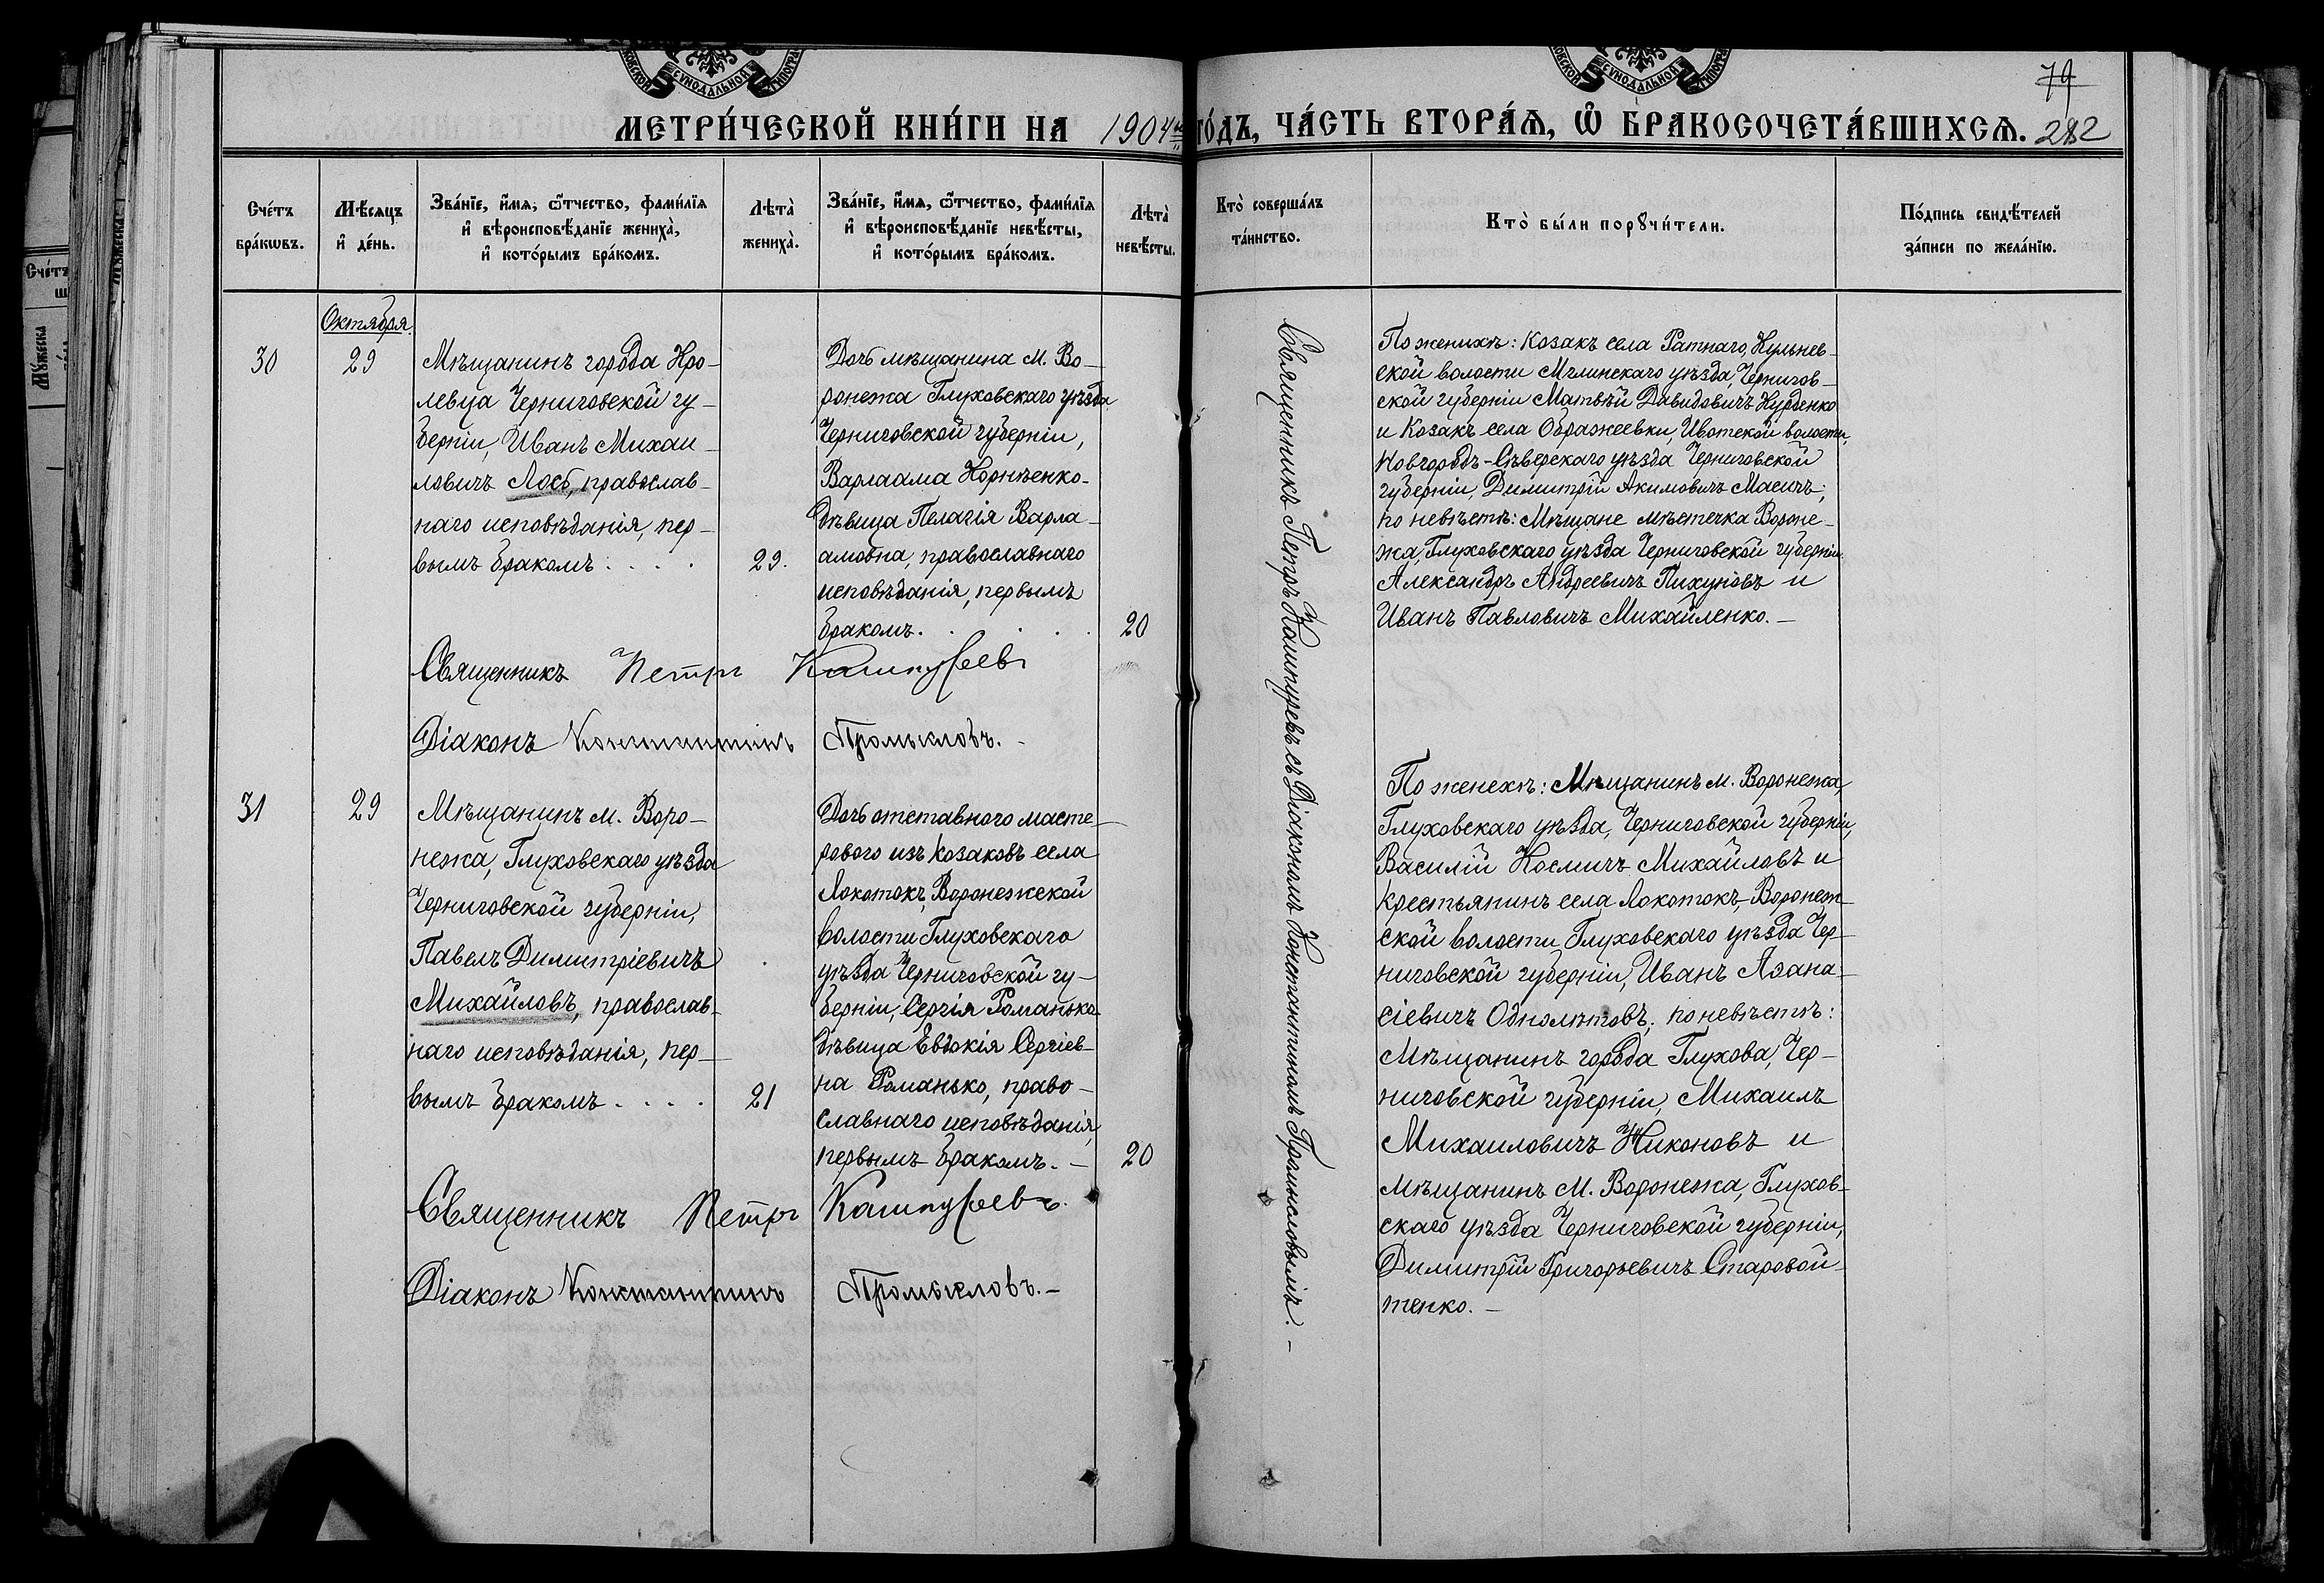 МОСКОВСКОЙ СѴНОДАЛЬНОЙ ТИПОГРА
МОСКОВСКОЙ СѴНОДАЛЬНОЙ ТИПОГР
79
МЕТРИ́ЧЕСКОЙ КНИ́ГИ НА 1904й ГО́ДЪ, ЧА́СТЬ ВТОРА́Ѧ, Ѡ҆ БРАКОСОЧЕТА́ВШИХСѦ.
282
Сче́тъ
бра́кѡвъ.
Мѣ́сяцъ
и҆ де́нь.
Зва́нїе, и҆́мѧ, ѻ҆́тчество, фами́лїѧ
и҆ вѣроисповѣ́данїе жениха̀,
и҆ кото́рымъ бра́комъ.
Лѣта̀
жениха̀.
Зва́нїе, и҆́мѧ, ѻ҆́тчество, фами́лїѧ
и҆ вѣроисповѣ́данїе невѣ́сты,
и҆ кото́рымъ бра́комъ.
Лѣта̀
невѣ́сты.
Кто̀ соверша́лъ
та́инство.
Кто̀ бы́ли порꙋчи́тели.
По́дпись свидѣ́телей
за́писи по жела́нїю.
Октября
30
29
Мѣщанинъ города Кро-
левца Черниговской гу-
берніи, Иванъ Михаи-
ловичъ Лось, православ-
наго исповѣданія, пер-
вымъ бракомъ . . . .
29.
Дочь мѣщанина м. Во-
ронежа Глуховскаго уѣзда
Черниговской губерніи,
Варлаама Корнѣенко-
дѣвица Пелагія Варла-
амовна, православнаго
исповѣданія, первымъ
бракомъ. . . . .
20
Священникъ Петръ Кашпуреевъ
Діаконъ Константинъ Промысловъ. -
По женихѣ: Козакъ села Ратнаго,
ской волости Мглинскаго уѣзда, Чернигов-
ской губерніи Матвѣй Давидовичъ
и Козакъ села Ображеевки, Ивотской волости,
Новгородъ-Сѣверскаго уѣзда Черниговской
губерніи, Димитрій Акимовичъ Масичъ;
по невѣстѣ: Мѣщане мѣстечка Вороне-
жа, Глуховскаго уѣзда Черниговской губерніи
Александръ Андреевичъ Пихуновъ и
Иванъ Павловичъ Михайленко. -
Священникъ Петръ Кашпуревъ съ Діакономъ Константиномъ Промысловымъ. -
31
29
Мѣщанинъ м. Воро-
нежа, Глуховскаго уѣзда
Черниговской губерніи,
Павелъ Димитріевичъ
Михайловъ, православ-
наго исповѣданія, пер-
вымъ бракомъ . . . .
21
Дочь отставного масте-
рового изъ Козаковъ села
Локотокъ, Воронежской
волости Глуховскаго
уѣзда Черниговской гу-
берніи, Сергія Романько-
дѣвица Евдокія Сергіев-
на Романько, право-
славнаго исповѣданія,
первымъ бракомъ. -
20
Священникъ Петръ Кашпуреевъ.
Діаконъ Константинъ Промысловъ. -
По женехѣ: Мѣщанинъ м. Воронежа,
Глуховскаго уѣзда, Черниговской губерніи,
Василій Космичъ Михайловъ и
Крестьянинъ села Локотокъ, Воронеж-
ской волости Глуховскаго уѣзда Чер-
ниговской губерніи, Иванъ Аѳана-
сіевичъ Однолѣтовъ; по невѣстѣ:
Мѣщанинъ города Глухова, Чер-
ниговской губерніи, Михаилъ
Михаиловичъ Никоновъ и
мѣщанинъ м. Воронежа, Глухов-
скаго уѣзда Черниговской губерніи,
Димитрій Григорьевичъ Старовой-
тенко. -